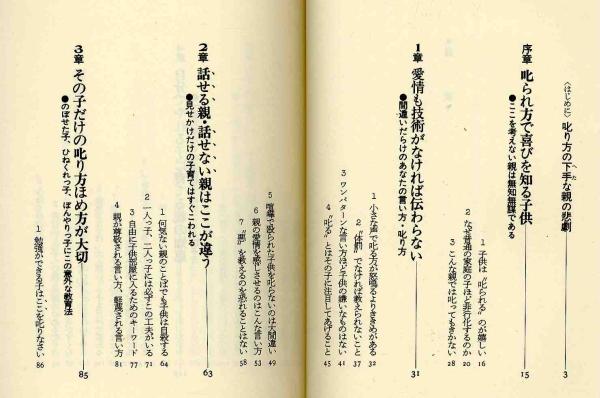 〈はじめに〉 叱り方の下手な親の悲劇 3
へた
序章 叱られ方で喜びを知る子供 15
●ここを考えない親は無知無謀である
1 子供は〝叱られる〟のが嬉しい 16
2 なぜ普通の家庭の子ほど非行化するのか 20
3 こんな親では叱ってもきかない 28
1章 愛情も技術がなければ伝わらない 31
●間違いだらけのあなたの言い方・叱り方
1 小さな声で叱る方が怒鳴るよりききめがある 32
2 〝体罰〟でなければ教えられないこと 37
3 ワンパターンな言い方ほど子供の嫌いなものはない 41
4 〝叱る〟とはその子に注目してあげること 45
5 喧嘩で殴られた子供を叱らないのは大間違い 49
6 親の愛情を感じさせるのはこんな言い方 53
7 〝悪〟を教えるのを恐れることはない 58
2章 話せる親・話せない親はここが違う 63
●見せかけだけの子育てはすぐこわれる
1 何気ない親のことばでも子供は自殺する 64
2 一人っ子、二人っ子には必ずこの工夫がいる 71
3 自由に子供部屋に入るためのキーワード 77
4 親が尊敬される言い方、軽蔑される言い方 81
3章 その子だけの叱り方ほめ方が大切 85
●のぼせた子、ひねくれっ子、ぼんやりっ子にこの意外な教育法
1 勉強ができる子はここを叱りなさい 86